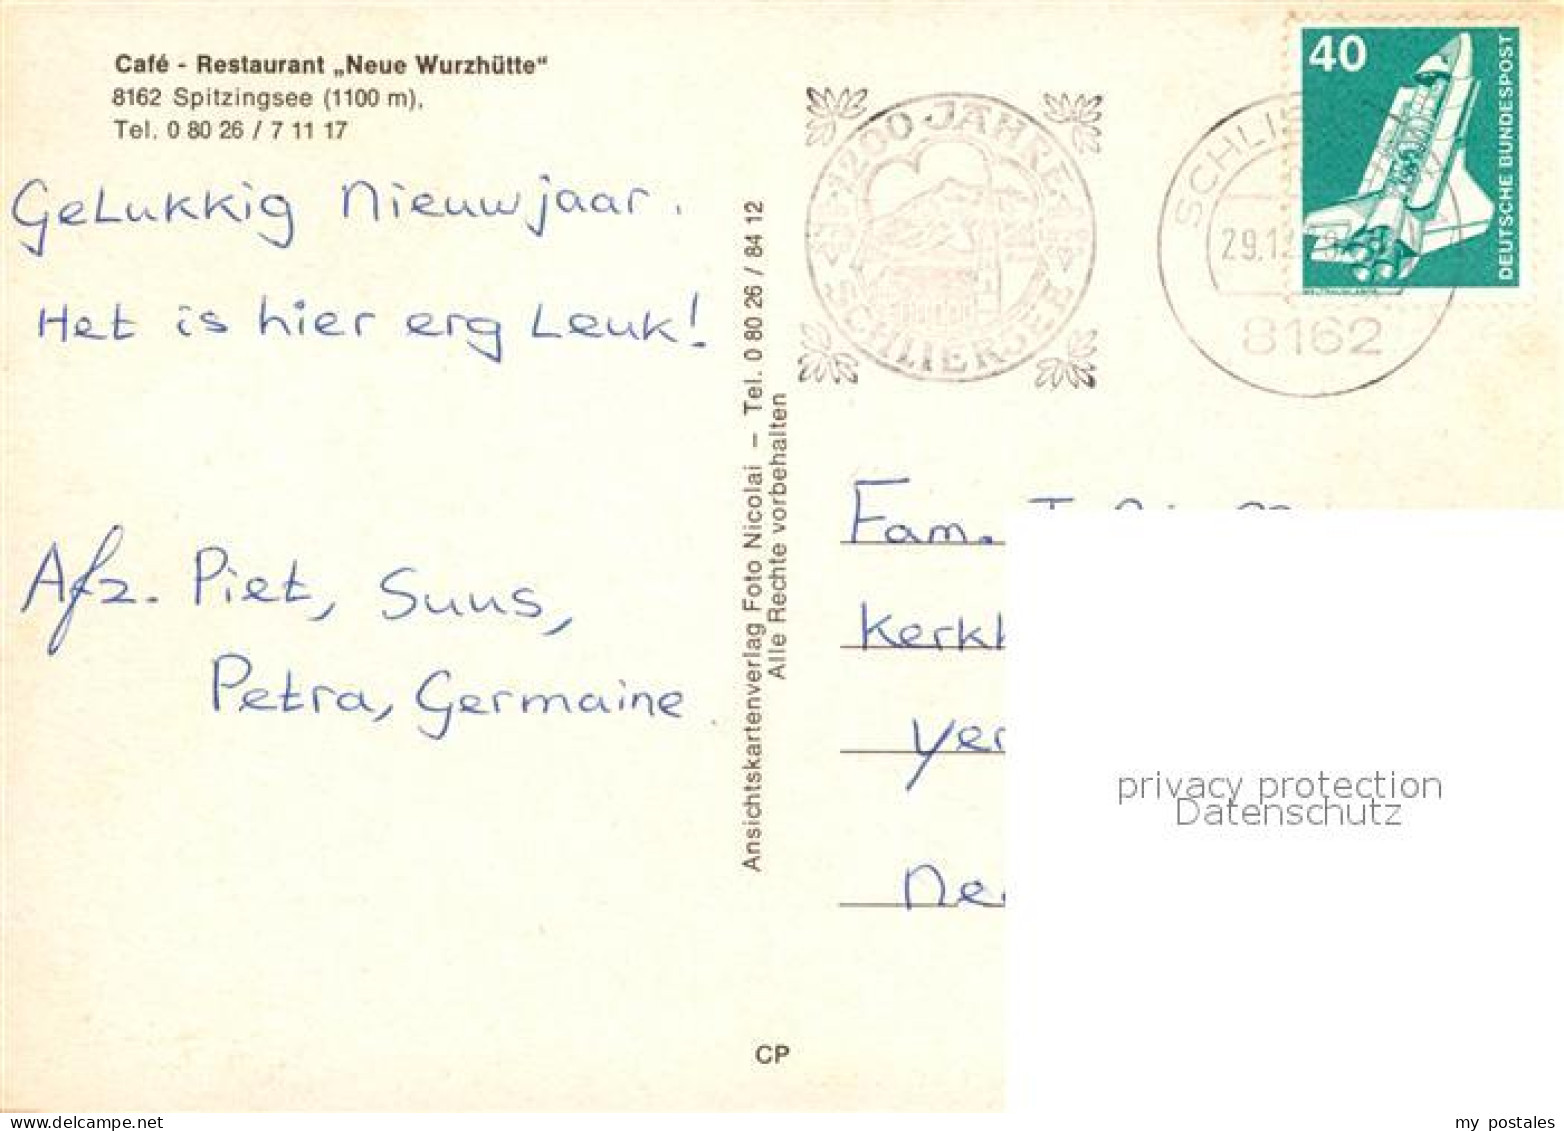 Café - Restaurant „Neue Wurzhütte“
8162 Spitzingsee (1100 m),
Tel. 0 80 26 / 7 11 17
Gelukkig Nieuwjaar.
Het is hier erg Leuk!
Afz. Piet, Suus,
Petra, Germaine
Ansichtskartenverlag Foto Nicolai – Tel. 0 80 26 / 84 12
Alle Rechte vorbehalten
CP
1200 JAHRE
SCHLIERSEE
8162
40
DEUTSCHE BUNDESPOST
Fam.
privacy protection
Datenschutz
my postales